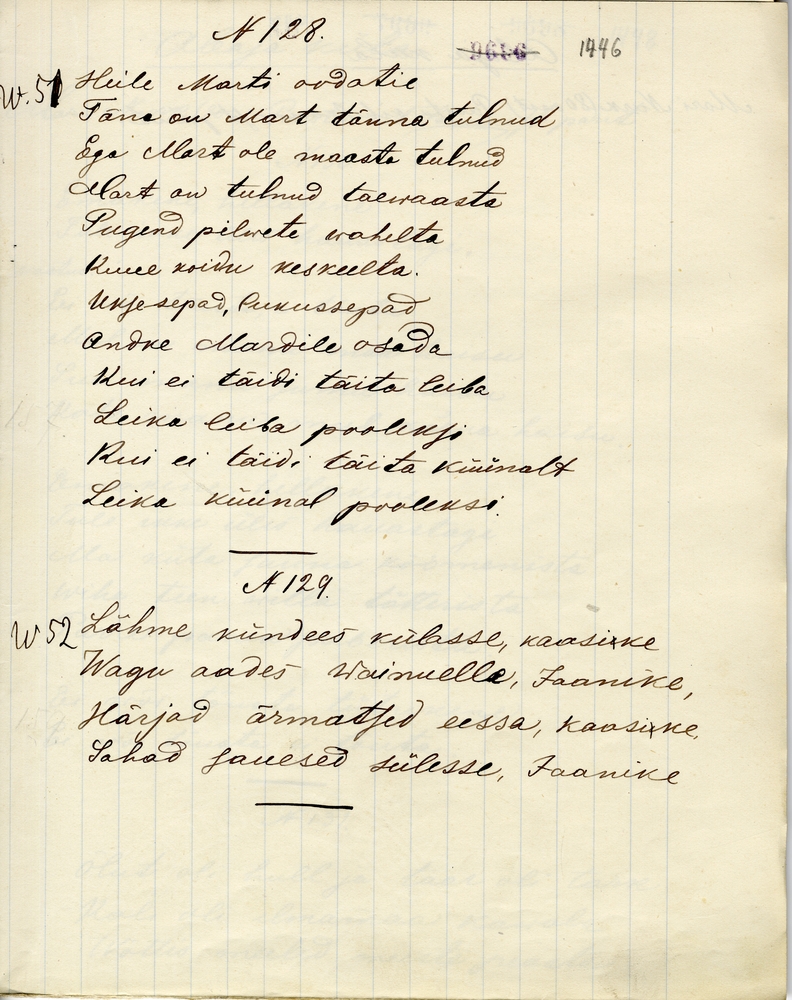 N 128.
9696 1446
W. 51 Heile Marti oodatie
Täna on Mart tänna tulnud
Ega Mart ole maasta tulnud
Mart on tulnud taewaasta
Pugend pilwete wahelta
Kuue koidu keskeelta.
Uksesepad, lukussepad
Andke Mardile osada
Kui ei täidi täita leiba
Leika leiba pooleksi
Kui ei täidi täita küünalt
Leika küünal pooleksi.
N 129.
W 52 Lähme kündees külasse, kaasieke
Wagu aades wainuelle, Jaanike,
Härjad ärmatsed eessa, kaasieke,
Sahad sauesed sülesse, Jaanike